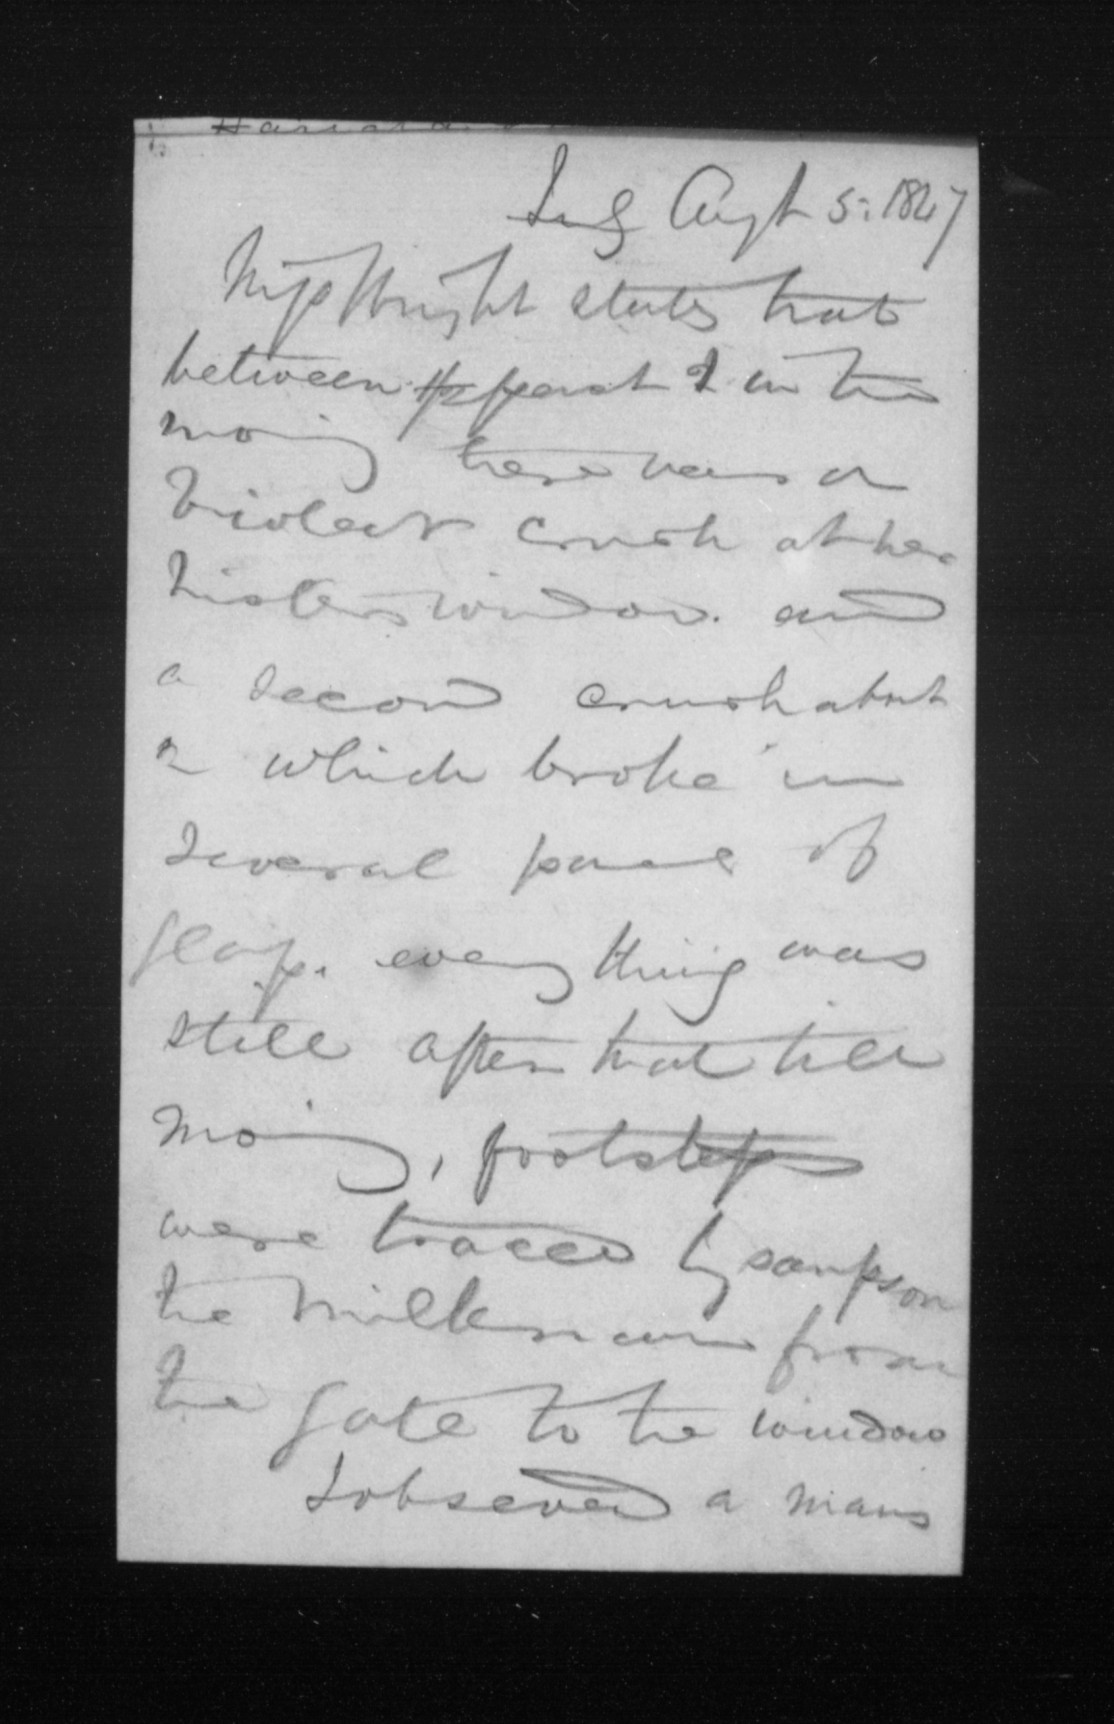 Augt 5. 1847
Miss Wright states that
between past 1 in the
morning there was a
violent crash at her
sisters window. and
a second crash about
2 which broke in
several pane of
glass. every thing was
still after that till
morning, footsteps
were traced by sampson
the milkman from
the gate to the window
I obseved a mans